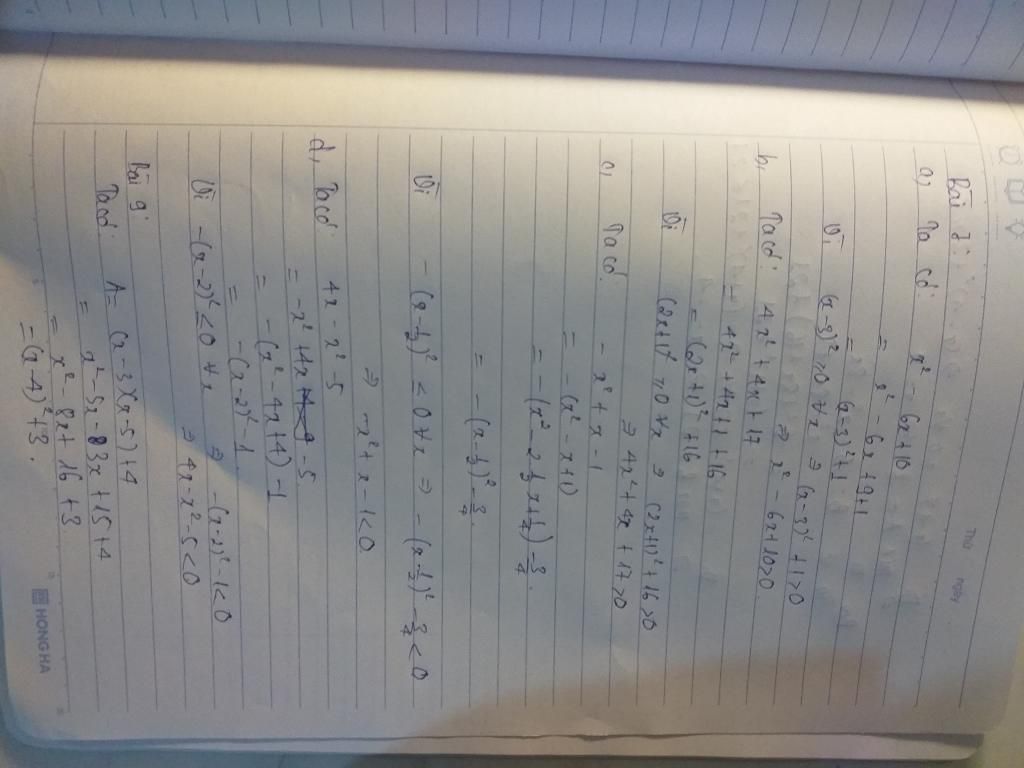 Thứ Ngày
Bài 8:
a, Ta có: x² - 6x + 10
= x² - 6x + 9 + 1
= (x-3)² + 1
Vì (x-3)² ≥ 0 ∀x ⇒ (x-3)² + 1 > 0
⇒ x² - 6x + 10 > 0
b, Ta có: 4x² + 4x + 17
= 4x² + 4x + 1 + 16
= (2x+1)² + 16
Vì (2x+1)² ≥ 0 ∀x ⇒ (2x+1)² + 16 > 0
⇒ 4x² + 4x + 17 > 0
c, Ta có: - x² + x - 1
= - (x² - x + 1)
= - (x² - 2 1/2 x + 1/4) - 3/4.
= - (x - 1/2)² - 3/4.
Vì - (x - 1/2)² ≤ 0 ∀x ⇒ - (x - 1/2)² - 3/4 < 0
⇒ -x² + x - 1 < 0
d, Ta có: 4x - x² - 5
= -x² + 4x - 5
= - (x² - 4x + 4) - 1
= - (x-2)² - 1
Vì -(x-2)² ≤ 0 ∀x ⇒ -(x-2)² - 1 < 0
⇒ 4x - x² - 5 < 0
Bài 9:
Ta có: A = (x-3)(x-5) + 4
= x² - 5x - 3x + 15 + 4
= x² - 8x + 16 + 3
= (x-4)² + 3.
HONG HA